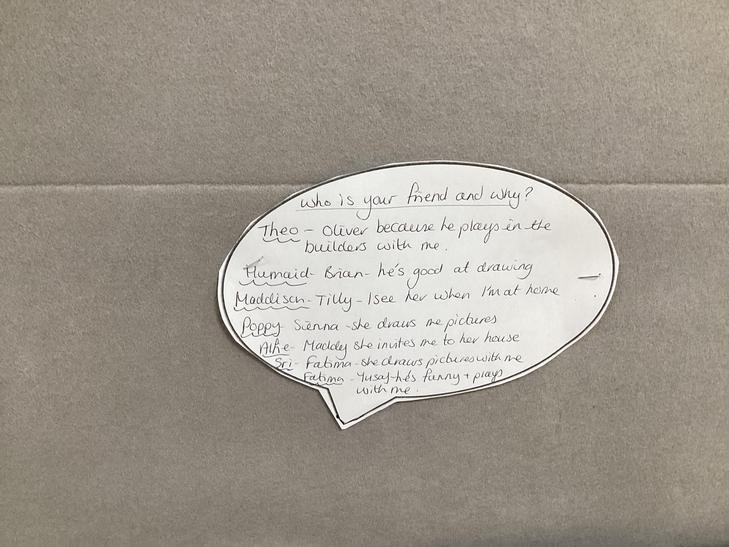 who is your friend and why?
Theo - Oliver because he plays in the
builders with me.
Humaid - Brian - he's good at drawing
Maddison - Tilly - I see her when I'm at home
Poppy Sienna - she draws me pictures
Alfie - Maddy she invites me to her house
Sri - Fatima - she draws pictures with me
Fatima - Yusaf - he's funny + plays
with me.